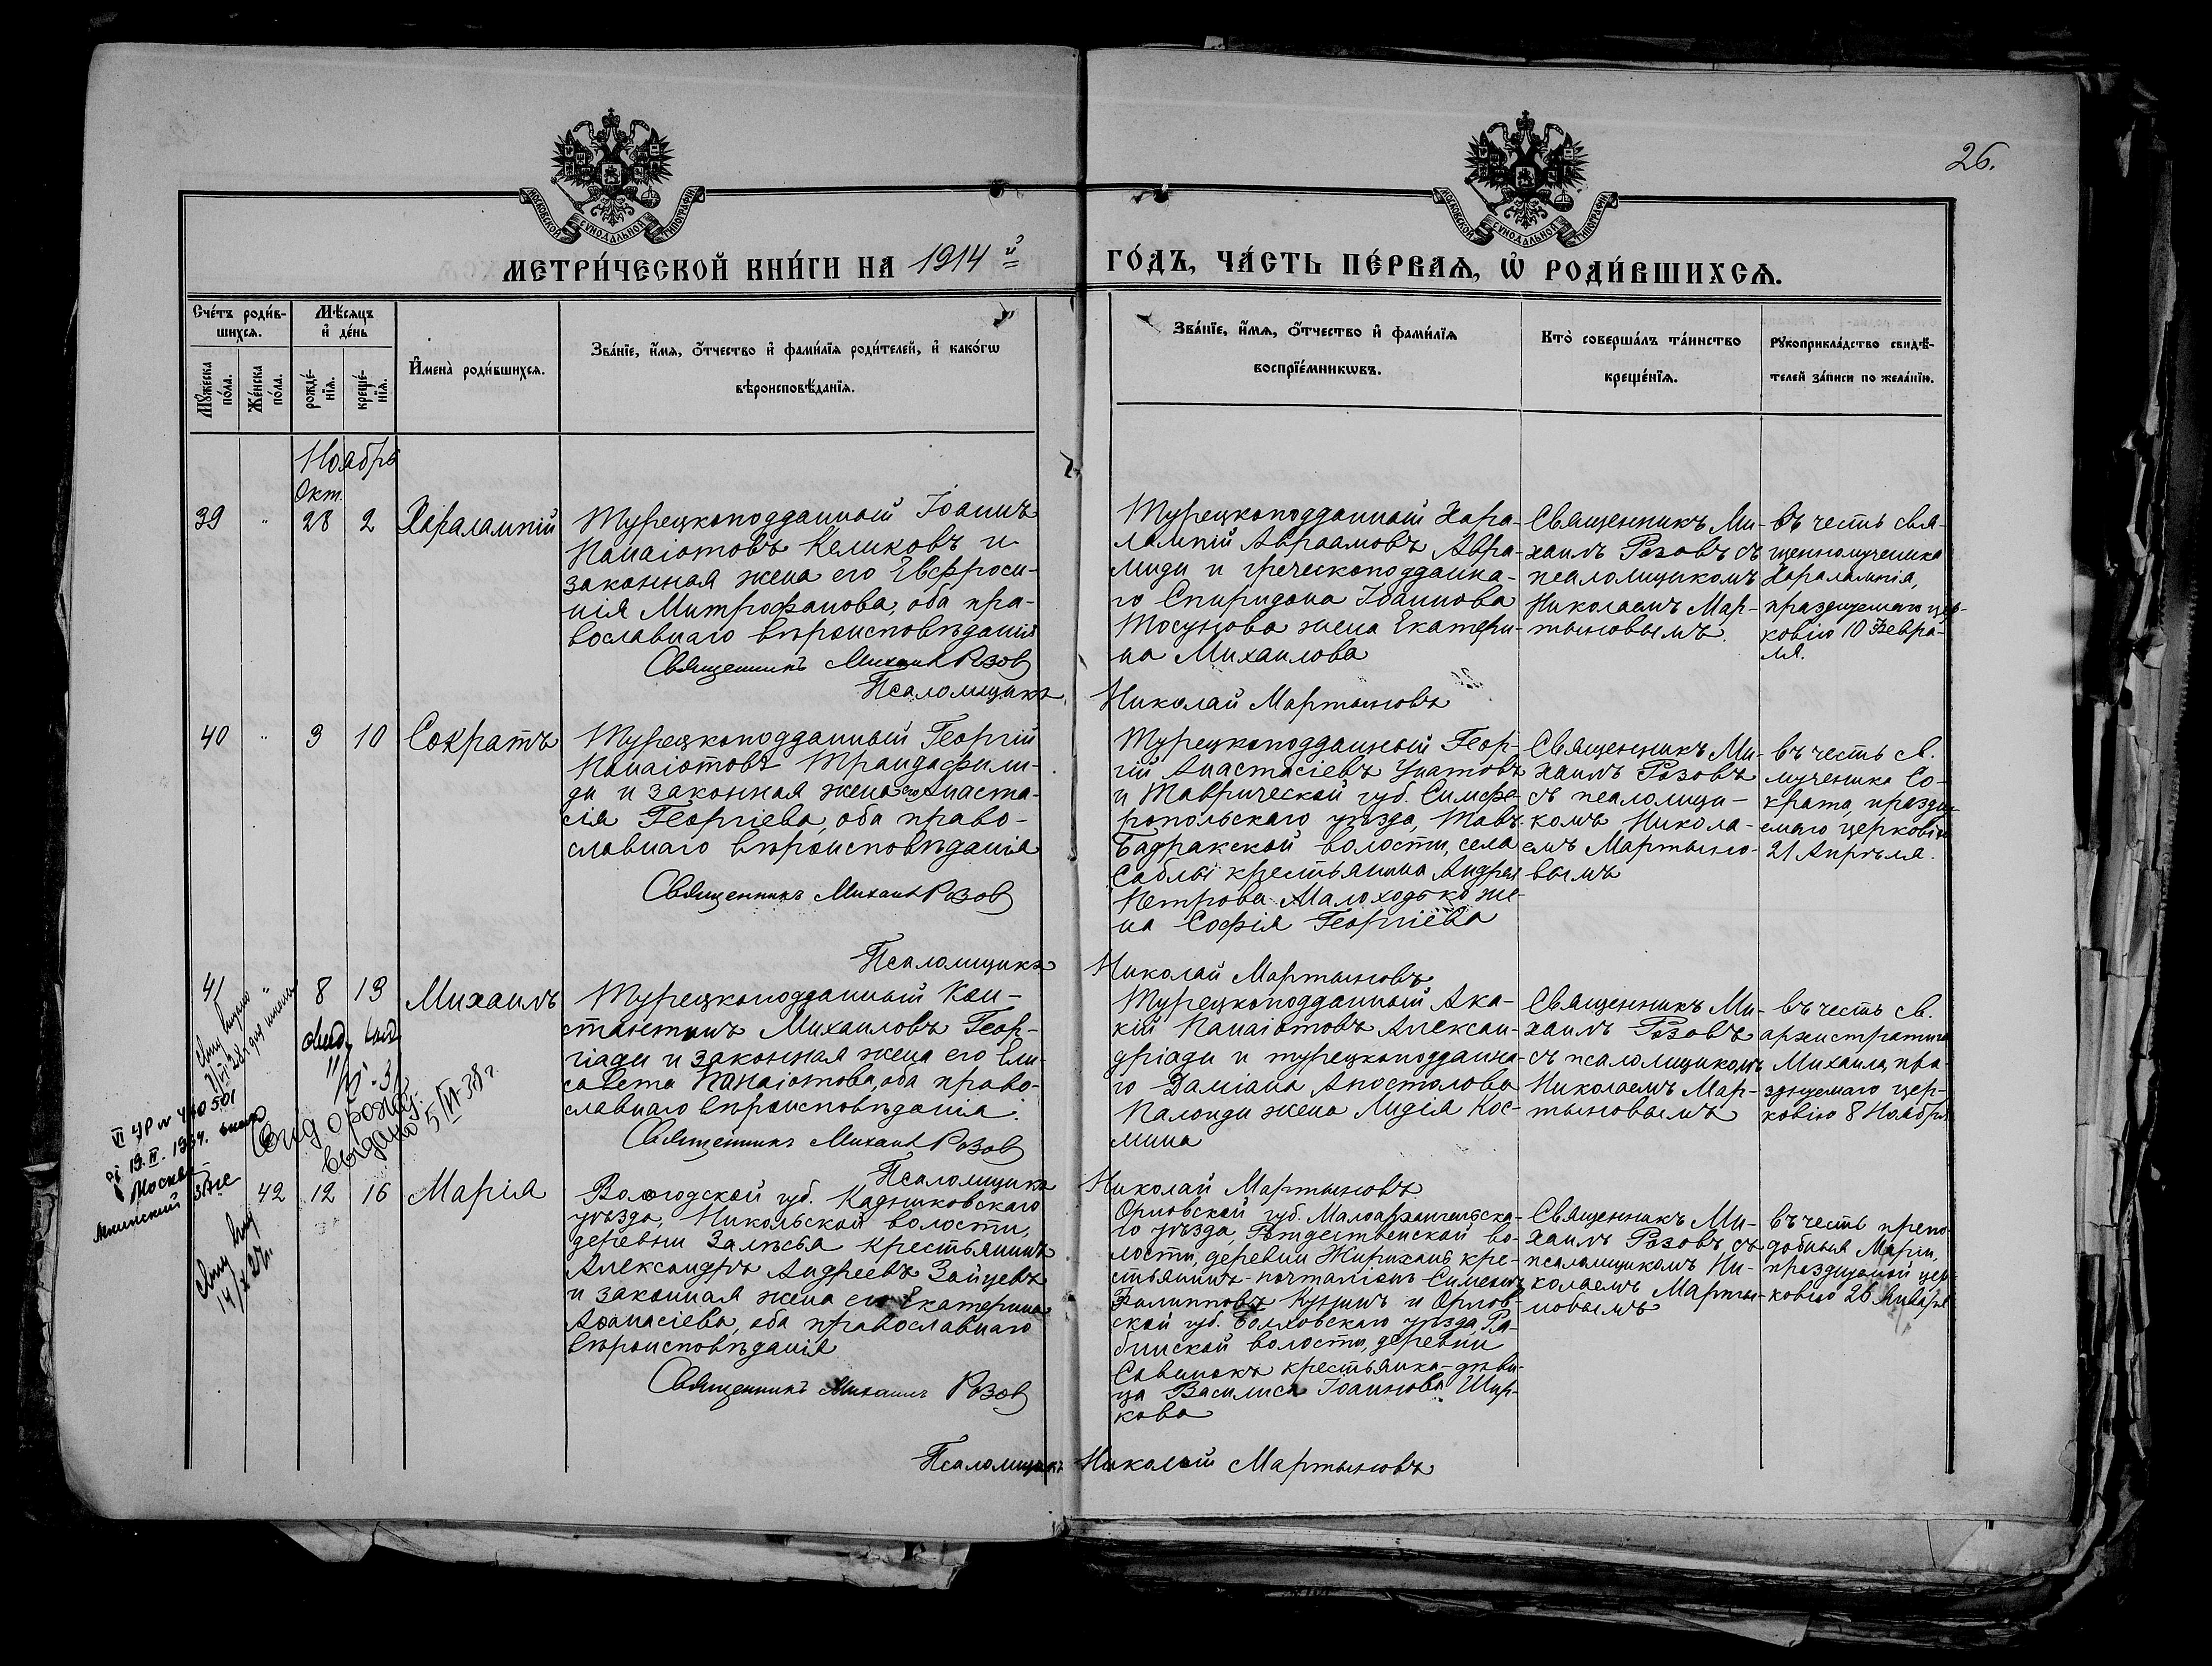 26.
МОСКОВСКОЙ СУНОДАЛЬНОЙ ТИПОГРАФІИ
МОСКОВСКОЙ СУНОДАЛЬНОЙ ТИПОГРАФІИ
МЕТРИ́ЧЕСКОЙ КНИ́ГИ НА 1914й
ГО́ДЪ, ЧА́СТЬ ПЕ́РВАѦ, Ѡ҆ РОДИ́ВШИХСѦ.
Сче́тъ роди́в-
шихсѧ.
Мꙋ́жеска по́ла.
Же́нска по́ла.
Мѣ́сѧцъ
и҆ де́нь
рожде́-
нїѧ.
креще́-
нїѧ.
И҆мена̀ роди́вшихсѧ.
Зва́нїе, и҆́мѧ, ѻ҆́тчество и҆ фами́лїѧ роди́телей, и҆ како́гѡ
вѣроисповѣ́данїѧ.
Зва́нїе, и҆́мѧ, ѻ҆́тчество и҆ фами́лїѧ
воспрїе́мникѡвъ.
Кто̀ соверша́лъ та́инство
креще́нїѧ.
Рꙋкоприкла́дство свидѣ́-
телей за́писи по жела́нїю.
Ноябрь
Окт.
39 " 28 2 Харалампій
Турецкоподданный Іоаннъ
Панаіотовъ Келиковъ и
законная жена его Евфроси-
нія Митрофанова, оба пра-
вославнаго вѣроисповѣданія
Священникъ Михаил Розов
Турецкоподданный Хара-
лампій Авраамовъ Авра-
миди и греческоподданна-
го Спиридона Іоаннова
Тосунова жена Екатери-
на Михаилова
Священникъ Ми-
хаилъ Розовъ съ
псаломщикомъ
Николаемъ Мар-
тыновымъ.
въ честь свя-
щенномученика
Харалампія,
празднуемаго цер-
ковію 10 Февра-
ля.
Псаломщикъ Николай Мартыновъ
40 " 3 10 Сократъ
Турецкоподданный Георгій
Панаіотовъ Трандафили-
ди и законная жена его Анаста-
сія Георгіева, оба право-
славнаго вѣроисповѣданія
Священникъ Михаил Розов
Турецкоподданный Геор-
гій Анастасіевъ Унатовъ
и Таврической губ. Симфе-
ропольскаго уѣзда, Тавъ-
Бадракской волости, села
Саблы крестьянина Андрея
Петрова Малоходько же-
на Софія Георгіева
Священникъ Ми-
хаилъ Розовъ
съ псаломщи-
комъ Никола-
емъ Мартыно-
вымъ
въ честь св.
мученика Со-
крата, праздну-
емаго церковію
21 Апрѣля.
Псаломщикъ Николай Мартыновъ
41 " 8 13 Михаилъ
Турецкоподданный Кон-
стантинъ Михаиловъ Геор-
гіади и законная жена его Ели-
савета Панаіотова, оба право-
славнаго вѣроисповѣданія.
Священникъ Михаил Розов
Турецкоподданный Ака-
кій Панаіотовъ Алексан-
дріади и турецкоподданна-
го Даміана Апостолова
Палонди жена Лидія Кос-
мина
Священникъ Ми-
хаилъ Розовъ
съ псаломщикомъ
Николаемъ Мар-
тыновымъ
въ честь св.
архистратига
Михаила, пра-
зднуемаго цер-
ковію 8 Ноября
Псаломщикъ Николай Мартыновъ
VI
Москва
выдано 5/VI-38 г.
42 12 16 Марія
Вологодской губ. Кадниковскаго
уѣзда, Никольской волости,
деревни Залѣсья крестьянинъ
Александръ Андреевъ Зайцевъ
и законная жена его Екатерина
Аѳанасіева, оба православнаго
вѣроисповѣданія
Священникъ Михаилъ Розов
Орловской губ. Малоархангельска-
го уѣзда, Рождественской во-
лости, деревни крe-
стьянинъ-почталіонъ Симеонъ
Филипповъ и Орлов-
ской губ. Болховскаго уѣзда, Ра-
бинской волости, деревни
крестьянка-дѣви-
ца Василиса Іоаннова Шир-
кова
Священникъ Ми-
хаилъ Розовъ съ
псаломщикомъ Ни-
колаемъ Марты-
новымъ
въ честь препо-
добныя Маріи,
празднуемой цер-
ковію 26 Января
Псаломщикъ Николай Мартыновъ